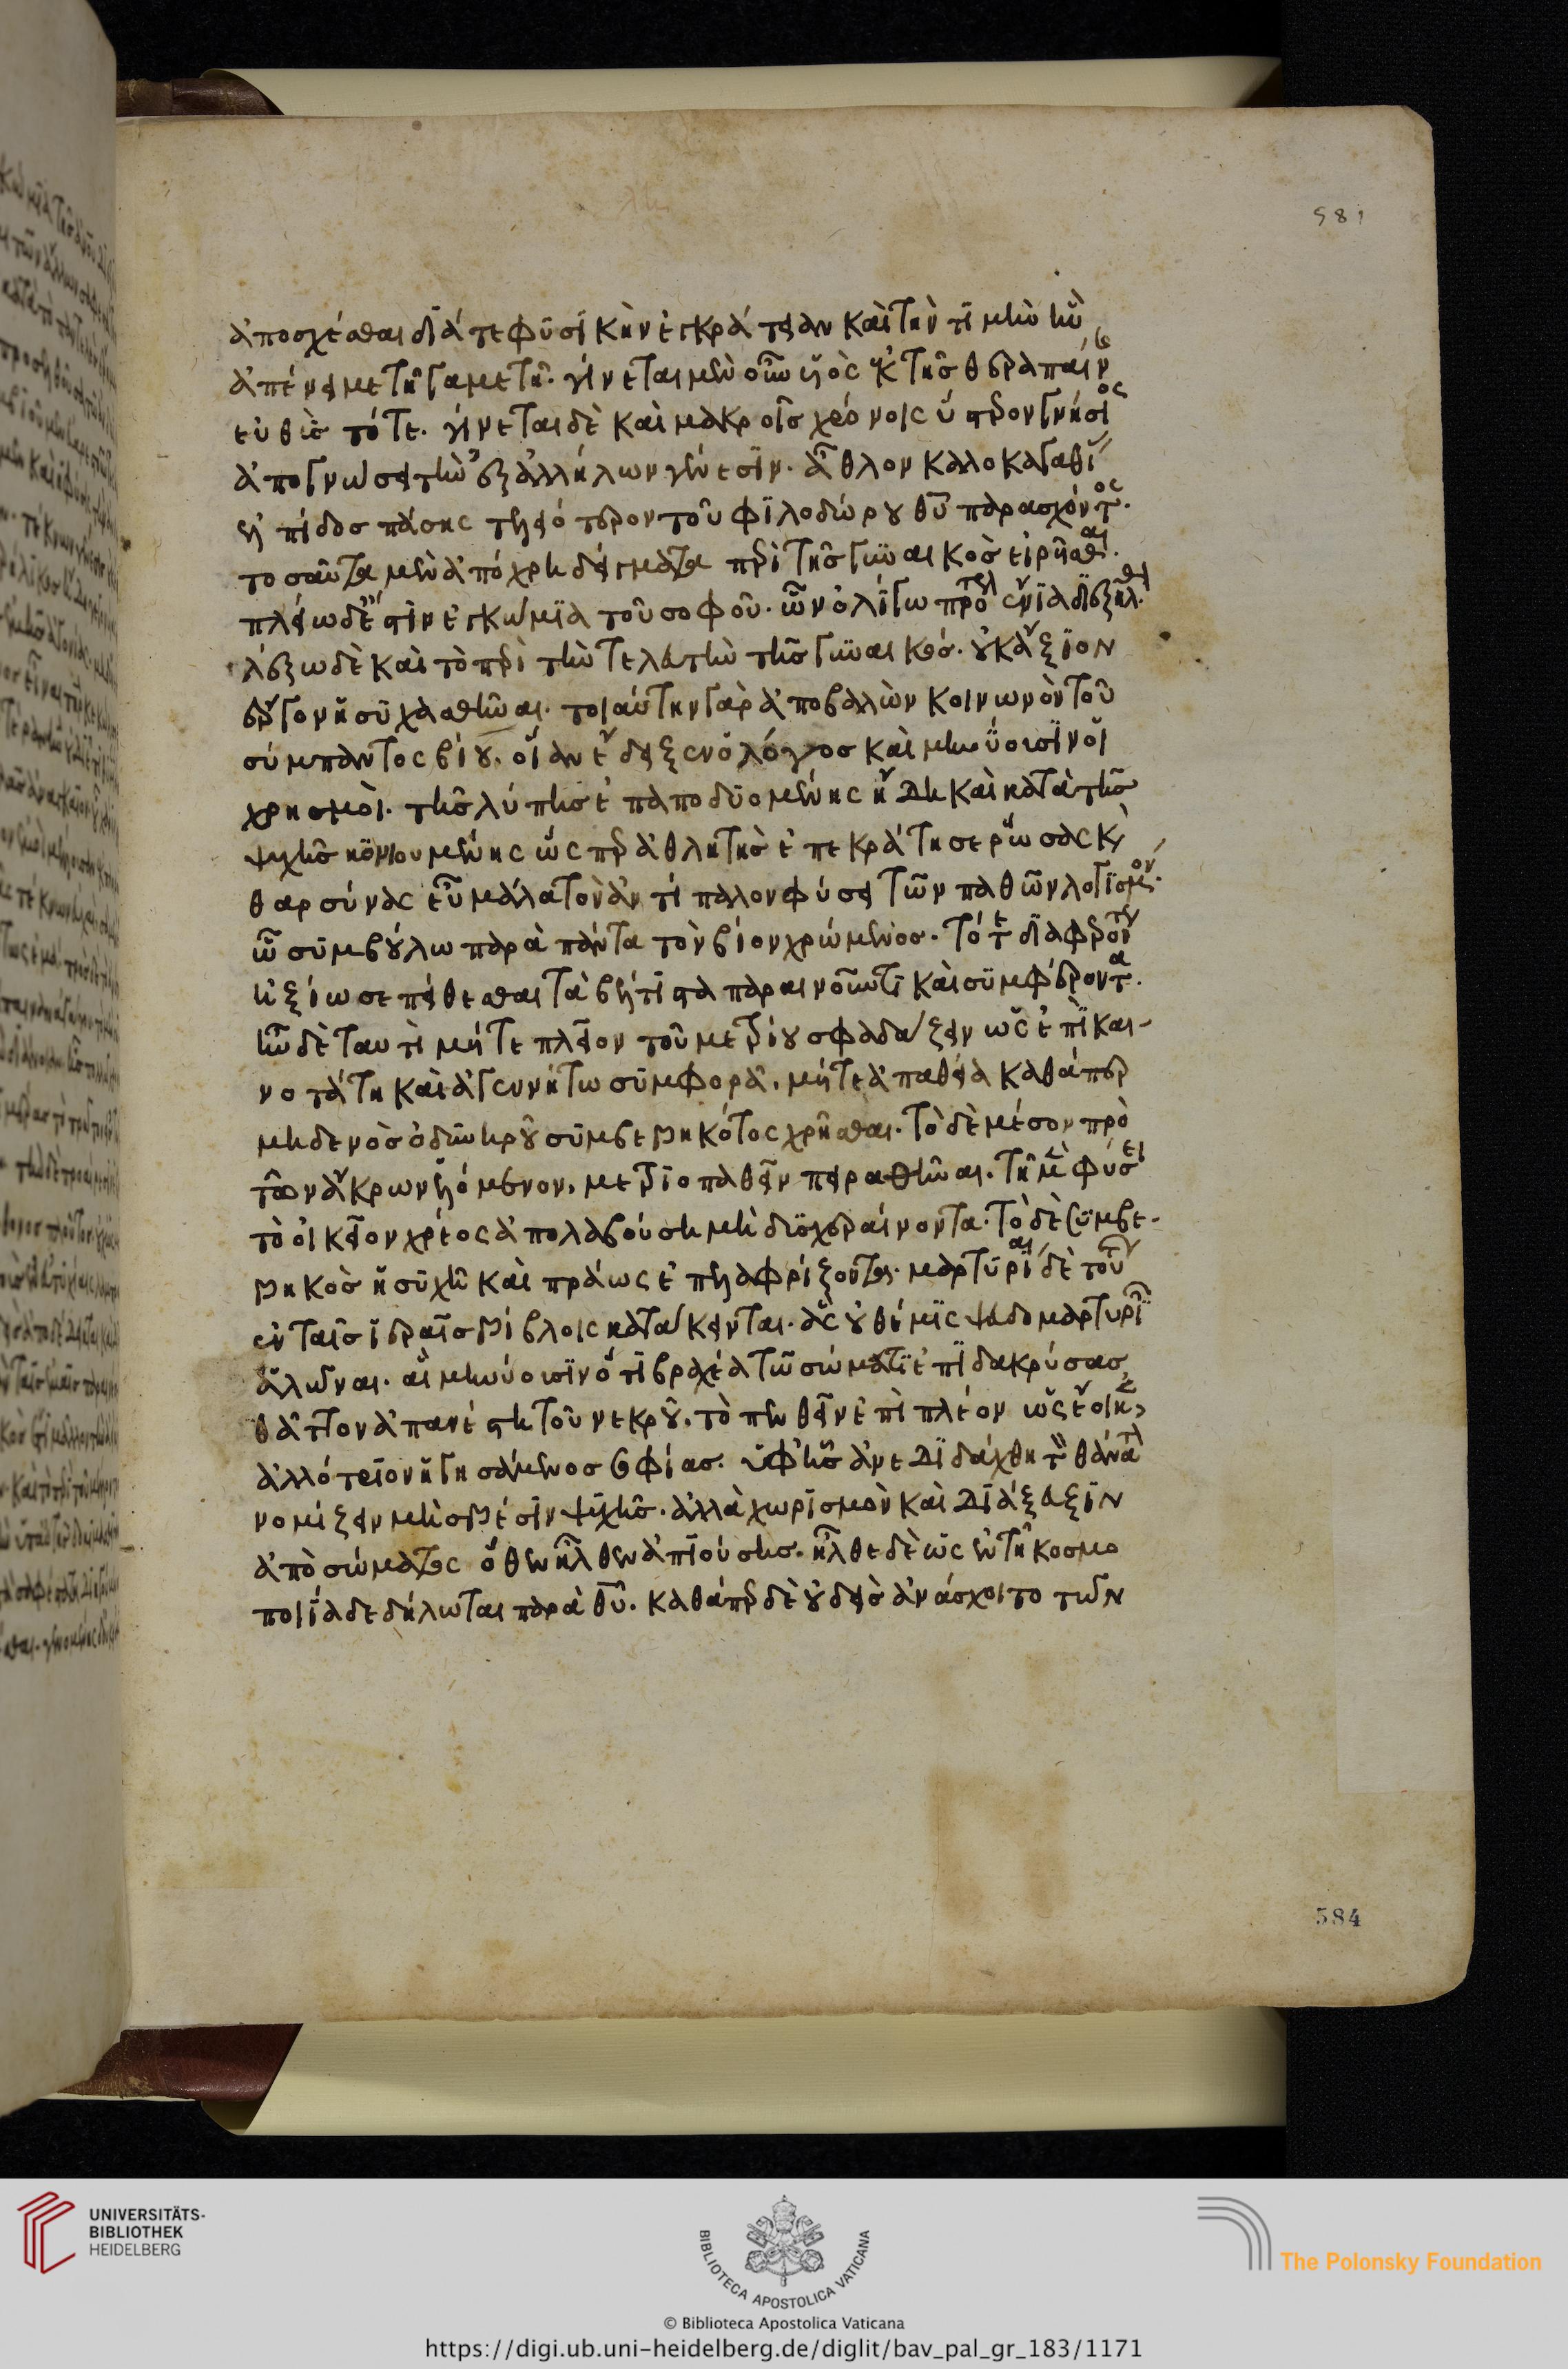 581
ἀποσχέσθαι διά τε φυσικὴν ἐγκράτειαν καὶ τὴν τιμὴν ἣν
ἀπένειμε τῇ γαμετῇ. γίνεται μὲν οὖν υἱὸς ἐκ τῆς θεραπαιν
εὐθὺς τότε. γίνεται δὲ καὶ μακροῖς χρόνοις ὕστερον γνήσιος
ἀπογνώσει τὴν ἐξ ἀλλήλων γένεσιν. ἆθλον καλοκαγαθί
ἐλπίδος πάσης τελειότερον τοῦ φιλοδώρου θυ παρασχόντος.
τοσαῦτα μὲν ἀπόχρη δείγματα περὶ τῆς γυναικὸς εἰρῆσθαι.
πλείω δέ ἐστιν ἐγκώμια τοῦ σοφοῦ. ὧν ὀλίγω πρότερον ἔνια διεξῆλθον.
λέξω δὲ καὶ τὸ περὶ τὴν τελευτὴν τῆς γυναικός. οὐκ ἄξιον
ἔργον ἡσυχασθῆναι. τοιαύτην γὰρ ἀποβαλὼν κοινωνὸν τοῦ
σύμπαντος βίου. οἵαν ἔδειξεν ὁ λόγος καὶ μηνύουσιν οἱ
χρησμοὶ. τῆς λύπης ἐπαποδυομένης ἤδη καὶ κατὰ τῆς
ψυχῆς κονιουμένης ὥσπερ ἀθλητὴς ἐπεκράτησε ῥώσας κ
θαρσύνας εὖ μάλα τὸν ἀντίπαλον φύσει τῶν παθῶν λογισμόν.
ὧ συμβούλω παρὰ πάντα τὸν βίον χρώμενος. τότε διαφερόντ
ἠξίωσε πείθεσθαι τὰ βέλτιστα παραινοῦντι καὶ συμφέροντα.
ἦν δὲ ταυτὶ μήτε πλεῖον τοῦ μετρίου σφαδάζειν ὡς ἐπὶ και-
νοτάτη καὶ ἀγεννήτω συμφορᾶ. μήτε ἀπαθεία καθάπερ
μηδενὸς ὀδυνηροῦ συμβεβηκότος χρῆσθαι. τὸ δὲ μέσον πρὸ
τῶν ἄκρων ἑλόμενον, μετριοπαθεῖν πειρασθῆναι. τῇ μὲν φύσει
τὸ οἰκεῖον χρέος ἀπολαβούση μὴ δυσχεραίνοντα. τὸ δὲ συμβε-
βηκὸς ἡσυχῇ καὶ πράως ἐπελαφρίζοντα. μαρτυρίαι δὲ τούτων
ἐν ταῖς ἱεραῖς βίβλοις κατάκεινται. ἃς οὐ θέμις ψευδομαρτυριῶν
ἁλῶναι. αἳ μηνύουσιν ὅτι βραχέα τῶ σώματι ἐπιδακρύσας
θᾶττον ἀπανέστη τοῦ νεκροῦ. τὸ πενθεῖν ἐπὶ πλέον ὡς ἔοικε,
ἀλλότριον ἡγησάμενος σοφίας. ὑφ' ἧς ἀνεδιδάχθη τὸν θάνατ
νομίζειν μὴ σβέσιν ψυχῆς. ἀλλὰ χωρισμὸν καὶ διάζευξιν
ἀπὸ σώματος ὅθεν ἦλθεν ἀπιούσης. ἦλθε δὲ ὡς ἐν τῇ κοσμο
ποιία δεδήλωται παρὰ θυ. καθάπερ δὲ οὐδεὶς ἀνάσχοιτο τῶν
584
UNIVERSITÄTS-
BIBLIOTHEK
HEIDELBERG
BIBLIOTECA APOSTOLICA VATICANA
The Polonsky Foundation
© Biblioteca Apostolica Vaticana
https://digi.ub.uni-heidelberg.de/diglit/bav_pal_gr_183/1171